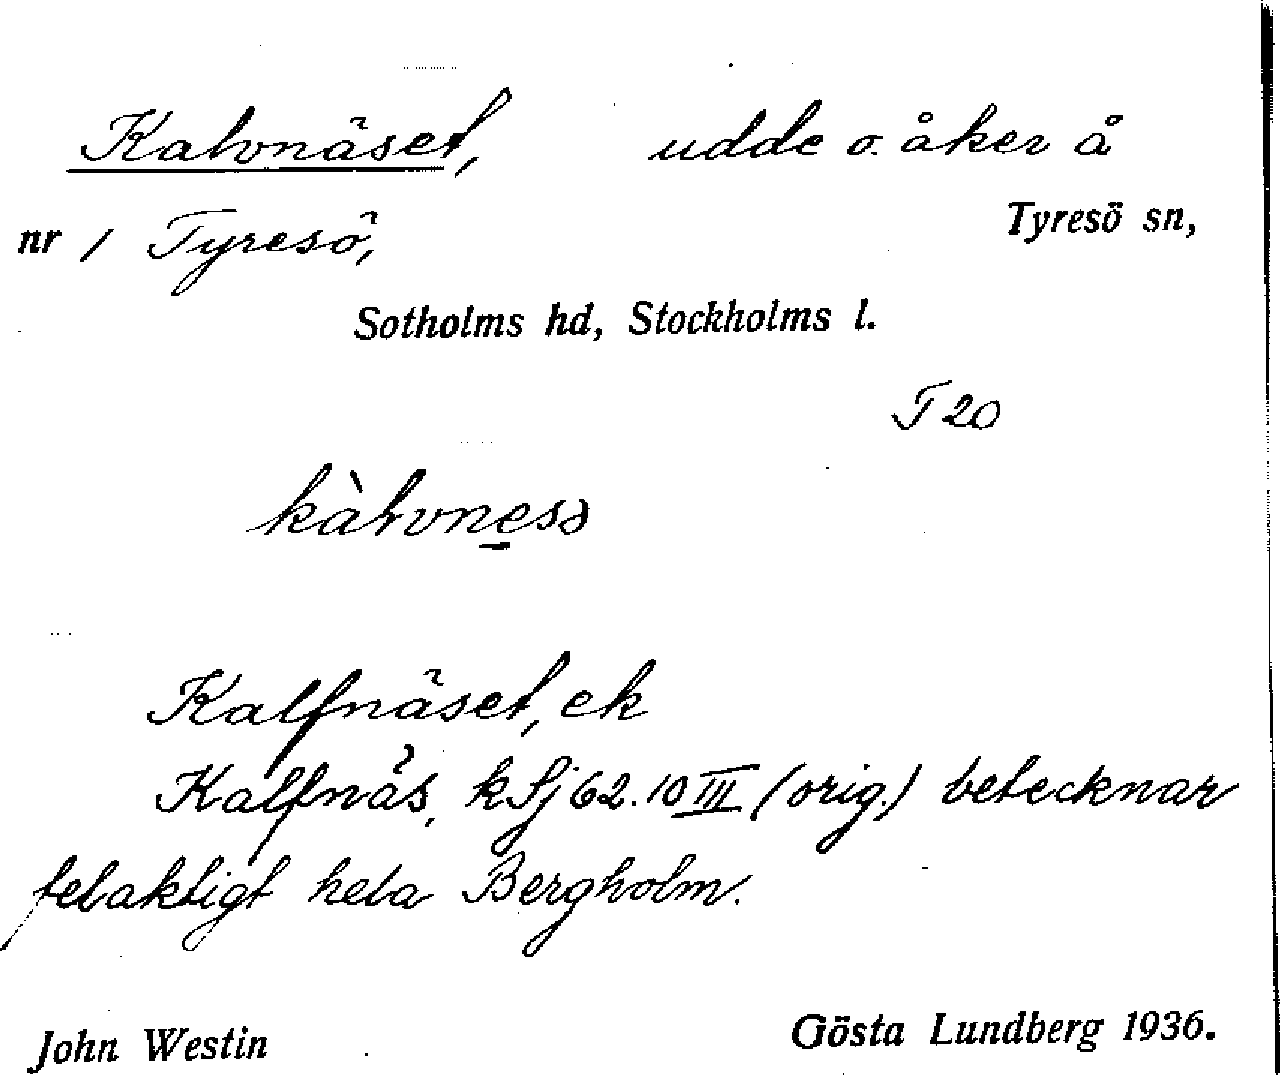 Kalvnäset, udde o. åker å
nr 1 Tyresö, Tyresö sn,
Sotholms hd, Stockholms l.
T 20
kàlvness
Kalfnäset, ek
Kalfnäs, k Sj 62. 10 III (orig.) betecknar
felaktigt hela Bergholm.
John Westin Gösta Lundberg 1936.